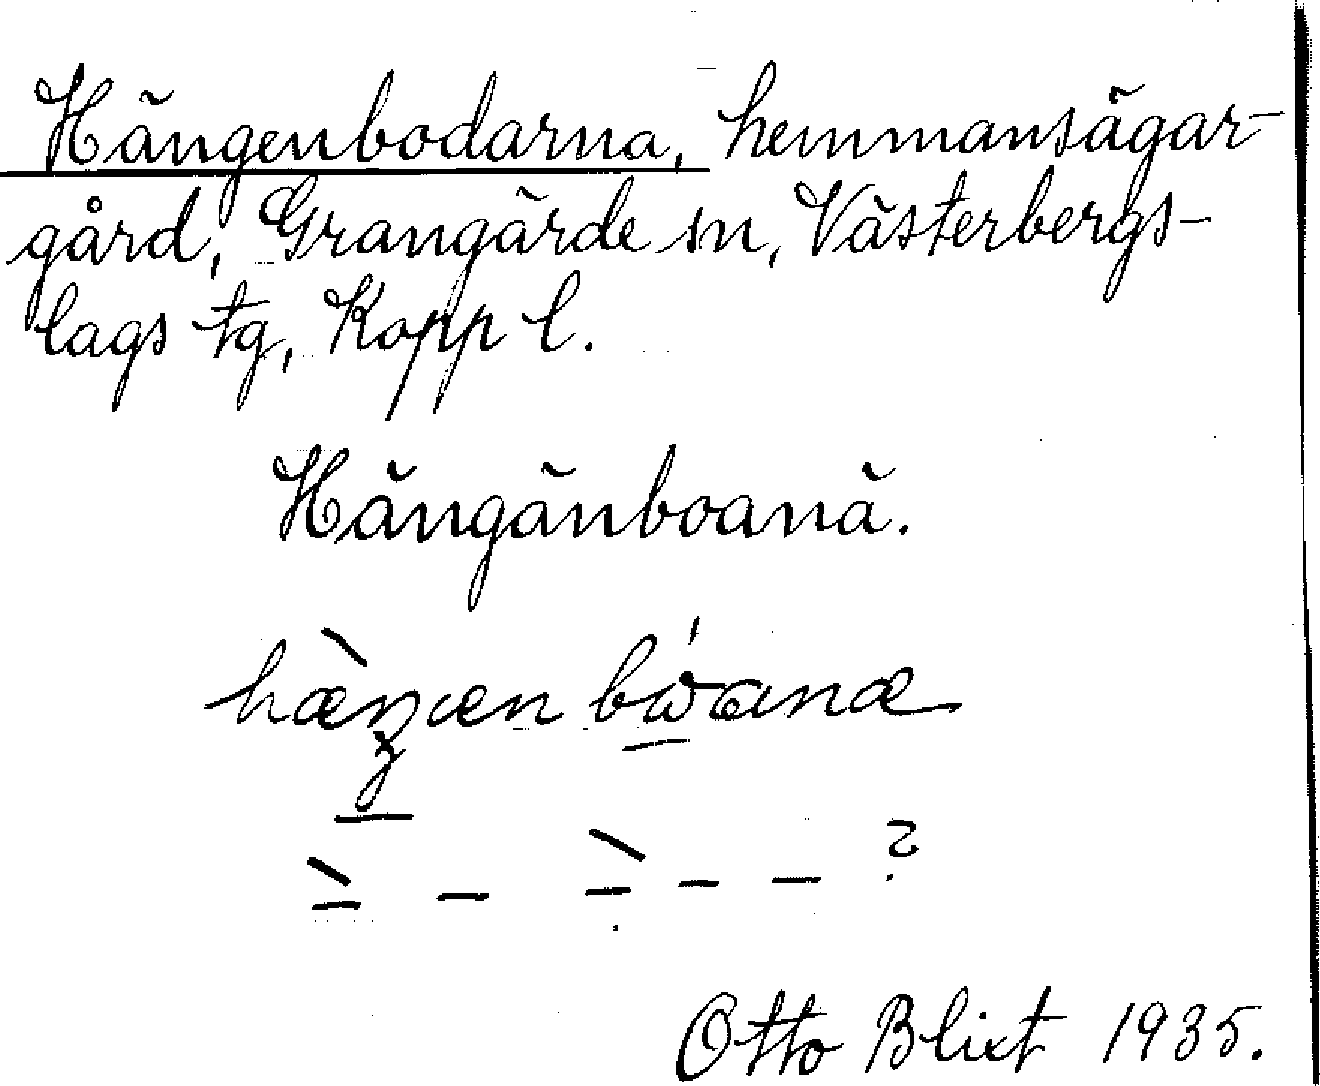 Hängenbodarna, hemmansägar-
gård, Grangärde sn, Västerbergs-
lags tg, Kopp l.
Hängänboanä.
Otto Blixt 1935.